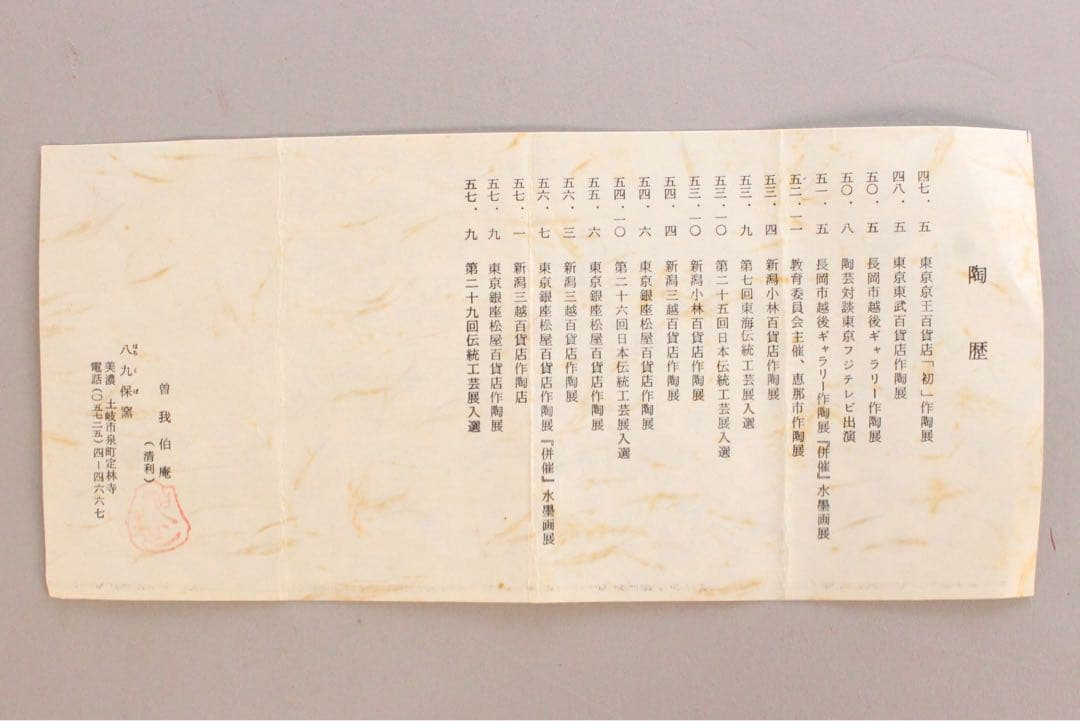 陶歴
四七・五 東京京王百貨店「初」作陶展
四八・五 東京東武百貨店作陶展
五〇・五 長岡市越後ギャラリー作陶展
五〇・八 陶芸対談東京フジテレビ出演
五一・五 長岡市越後ギャラリー作陶展『併催』水墨画展
五二・一一 教育委員会主催、恵那市作陶展
五三・四 新潟小林百貨店作陶展
五三・九 第七回東海伝統工芸展入選
五三・一〇 第二十五回日本伝統工芸展入選
五三・一〇 新潟小林百貨店作陶展
五四・四 新潟三越百貨店作陶展
五四・六 東京銀座松屋百貨店作陶展
五四・一〇 第二十六回日本伝統工芸展入選
五五・六 東京銀座松屋百貨店作陶展
五六・三 新潟三越百貨店作陶展
五六・七 東京銀座松屋百貨店作陶展『併催』水墨画展
五七・一 新潟三越百貨店作陶店
五七・九 東京銀座松屋百貨店作陶展
五七・九 第二十九回伝統工芸展入選
曽我伯庵
(清利)
八九保窯
美濃 土岐市泉町定林寺
電話(〇五七二五)四ー四六六七